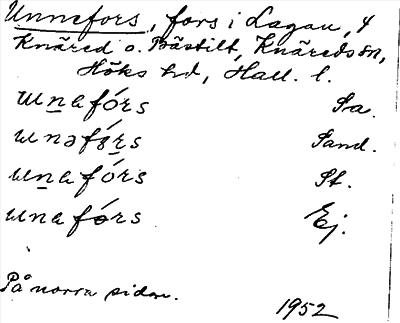 Unnefors, fors i Lagan, f
Knäred o. Båstilt, Knäreds sn,
Höks hd, Hall. l.
unafórs Sa.
unəfors Sand.
unafórs St.
unafórs Ej.
På norra sidan.
1952